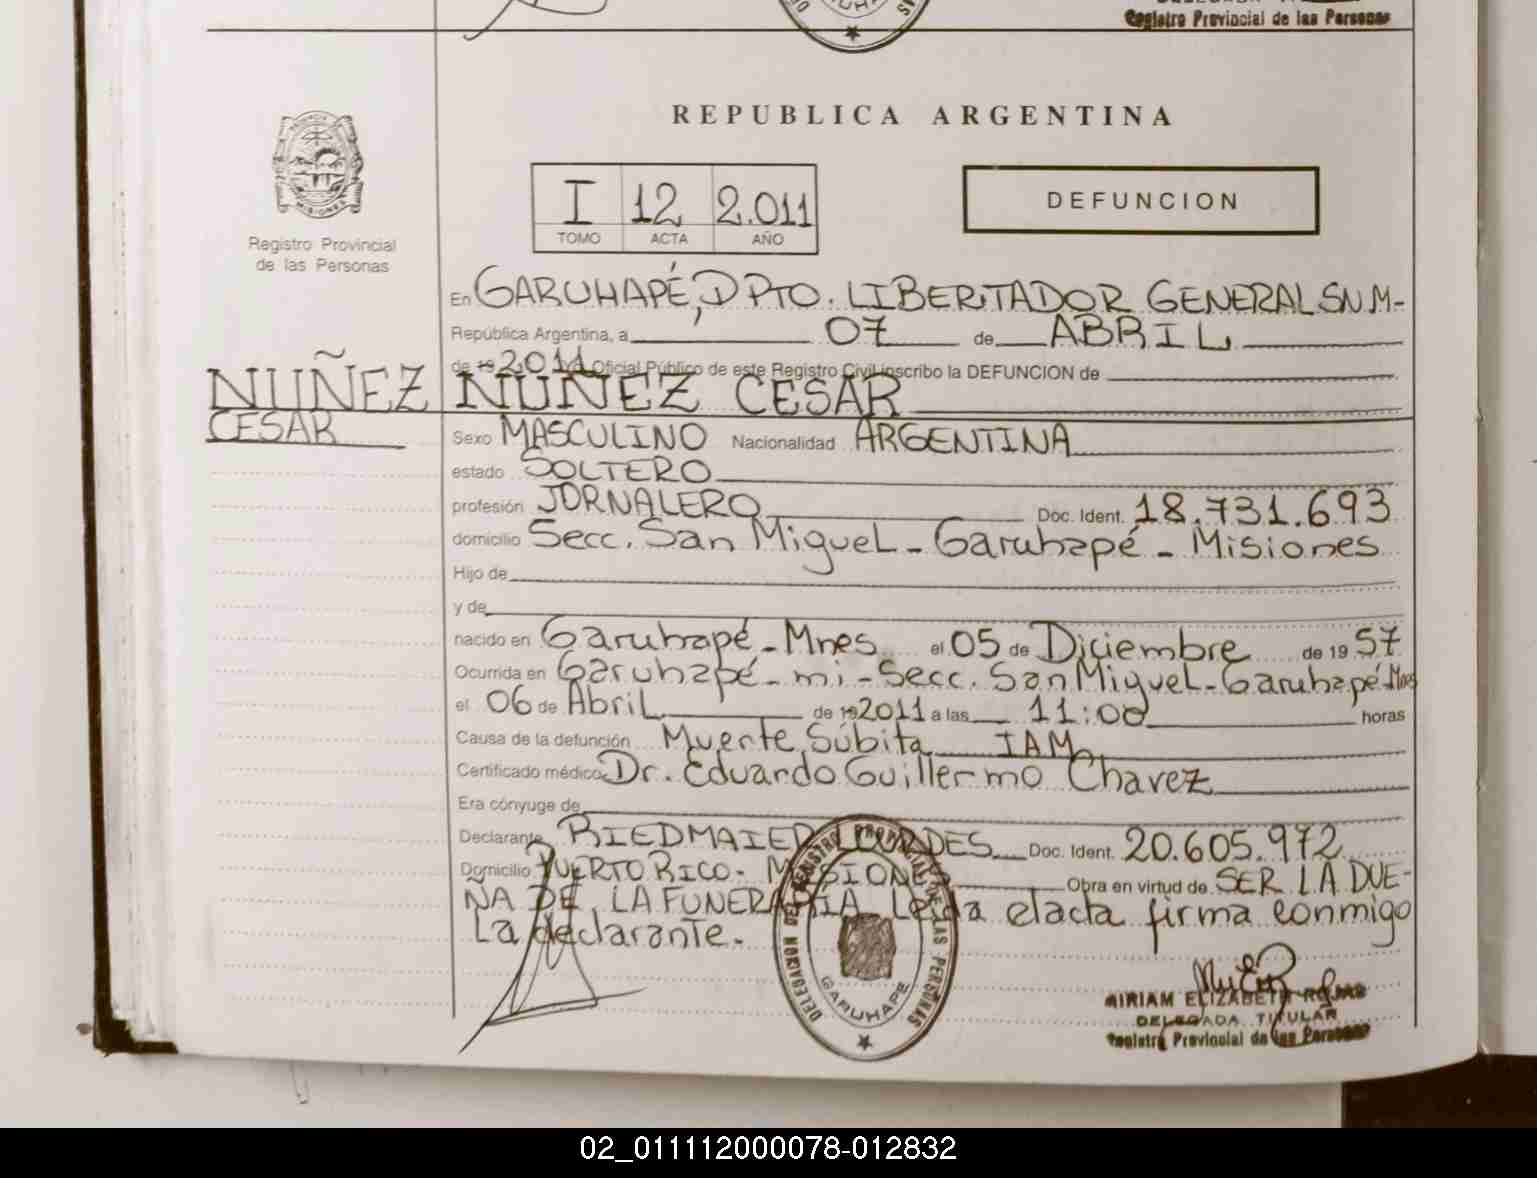 Registro Provincial de las Personas
REPUBLICA ARGENTINA
I 12 2.011
TOMO ACTA AÑO
DEFUNCION
MISIONES
Registro Provincial
de las Personas
En GARUHAPÉ, DPTO. LIBERTADOR GENERAL SN M-
República Argentina, a 07 de ABRIL
de 19 2011 Yo Oficial Público de este Registro Civil inscribo la DEFUNCION de
NUÑEZ
CESAR
NUÑEZ CESAR
Sexo MASCULINO Nacionalidad ARGENTINA
estado SOLTERO
profesión JORNALERO Doc. Ident. 18.731.693
domicilio Secc. San Miguel - Garuhapé - Misiones
Hijo de
y de
nacido en Garuhapé - Mnes el 05 de Diciembre de 19 57
Ocurrida en Garuhapé - mi - Secc. San Miguel - Garuhapé-Mnes
el 06 de Abril de 19 2011 a las 11:00 horas
Causa de la defunción Muerte Súbita IAM
Certificado médico Dr. Eduardo Guillermo Chavez
Era cónyuge de
Declarante RIEDMAIER LOURDES Doc. Ident. 20.605.972
Domicilio PUERTO RICO - MISIONES Obra en virtud de SER LA DUE-
ÑA DE LA FUNERARIA Leida el acta firma conmigo
La declarante.
DELEGACION DEL REGISTRO PROVINCIAL DE LAS PERSONAS
GARUHAPE
MIRIAM ELIZABETH ROJAS
DELEGADA TITULAR
Registro Provincial de las Personas
02_011112000078-012832